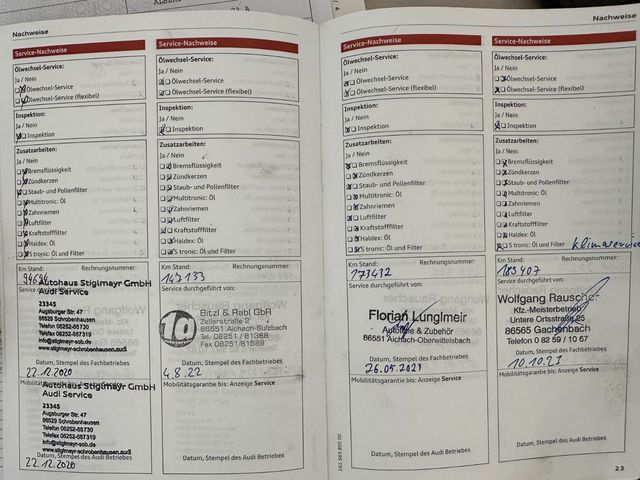 Nachweise
Service-Nachweise
Ölwechsel-Service:
Ja / Nein
Ölwechsel-Service
Ölwechsel-Service (flexibel)
Inspektion:
Ja / Nein
Inspektion
Zusatzarbeiten:
Ja / Nein
Bremsflüssigkeit
Zündkerzen
Staub- und Pollenfilter
Multitronic: Öl
Zahnriemen
Luftfilter
Kraftstofffilter
Haldex: Öl
S tronic: Öl und Filter
Km Stand: Rechnungsnummer:
Autohaus Stiglmayr GmbH
Audi Service
23345
Augsburger Str. 47
86529 Schrobenhausen
Telefon 08252-88730
Telefax 08252-887319
info@stiglmayr-sob.de
www.stiglmayr-schrobenhausen.audi
Datum, Stempel des Fachbetriebes
22.12.2020
Mobilitätsgarantie bis: Anzeige Service
Autohaus Stiglmayr GmbH
Audi Service
23345
Augsburger Str. 47
86529 Schrobenhausen
Telefon 08252-88730
Telefax 08252-887319
info@stiglmayr-sob.de
www.stiglmayr-schrobenhausen.audi
Datum, Stempel des Audi Betriebes
22.12.2020
Service-Nachweise
Ölwechsel-Service:
Ja / Nein
Ölwechsel-Service
Ölwechsel-Service (flexibel)
Inspektion:
Ja / Nein
Inspektion
Zusatzarbeiten:
Ja / Nein
Bremsflüssigkeit
Zündkerzen
Staub- und Pollenfilter
Multitronic: Öl
Zahnriemen
Luftfilter
Kraftstofffilter
Haldex: Öl
S tronic: Öl und Filter
Km Stand: Rechnungsnummer:
147 133
Service durchgeführt von:
Bitzl & Rabl GbR
Zellerstraße 2
86551 Aichach-Sulzbach
Tel. 08251 / 81388
Fax 08251/81588
Datum, Stempel des Fachbetriebes
4.8.22
Mobilitätsgarantie bis: Anzeige Service
Datum, Stempel des Audi Betriebes
Nachweise
Service-Nachweise
Ölwechsel-Service:
Ja / Nein
Ölwechsel-Service
Ölwechsel-Service (flexibel)
Inspektion:
Ja / Nein
Inspektion
Zusatzarbeiten:
Ja / Nein
Bremsflüssigkeit
Zündkerzen
Staub- und Pollenfilter
Multitronic: Öl
Zahnriemen
Luftfilter
Kraftstofffilter
Haldex: Öl
S tronic: Öl und Filter
Km Stand: Rechnungsnummer:
173432
Service durchgeführt von:
Florian Lunglmeir
& Zubehör
86551 Aichach-Oberwittelsbach
Datum, Stempel des Fachbetriebes
26.05.2023
Mobilitätsgarantie bis: Anzeige Service
Datum, Stempel des Audi Betriebes
161.563.850.02
Service-Nachweise
Ölwechsel-Service:
Ja / Nein
Ölwechsel-Service
Ölwechsel-Service (flexibel)
Inspektion:
Ja / Nein
Inspektion
Zusatzarbeiten:
Ja / Nein
Bremsflüssigkeit
Zündkerzen
Staub- und Pollenfilter
Multitronic: Öl
Zahnriemen
Luftfilter
Kraftstofffilter
Haldex: Öl
S tronic: Öl und Filter
Klimaservice
Km Stand: Rechnungsnummer:
183 407
Service durchgeführt von:
Wolfgang Rauscher
Kfz.-Meisterbetrieb
Untere Ortsstraße 25
86565 Gachenbach
Telefon 0 82 59 / 10 67
Datum, Stempel des Fachbetriebes
10.10.23
Mobilitätsgarantie bis: Anzeige Service
Datum, Stempel des Audi Betriebes
23